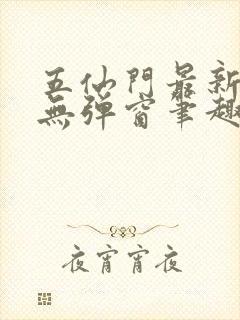 五仙門最新
無彈窗筆趣
夜宵宵夜